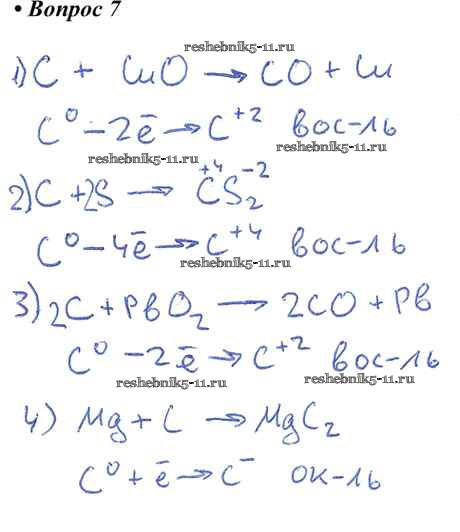 • Вопрос 7
reshebnik5-11.ru
1) C + CuO → CO + Cu
C⁰ – 2ē → C⁺² вос-ль
reshebnik5-11.ru
reshebnik5-11.ru
2) C + 2S → C⁺⁴S₂⁻²
C⁰ – 4ē → C⁺⁴ вос-ль
reshebnik5-11.ru
3) 2C + PbO₂ → 2CO + Pb
C⁰ – 2ē → C⁺² вос-ль
reshebnik5-11.ru
reshebnik5-11.ru
4) Mg + C → MgC₂
C⁰ + ē → C⁻ ок-ль